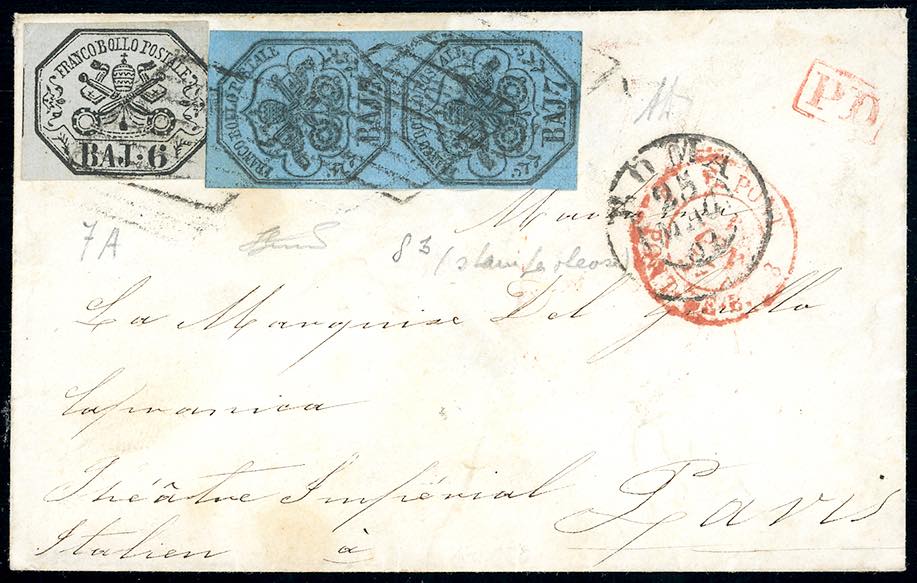 FRANCO BOLLO POSTALE
BAJ: 6
FRANCO BOLLO POSTALE
BAJ 7
FRANCO BOLLO POSTALE
BAJ 7
P.D.
ROMA
25
MAG
7A
83 (stampa oleosa)
Madame
La Marquise Del Grillo
Capranica
Théâtre Impérial
Italien à Paris